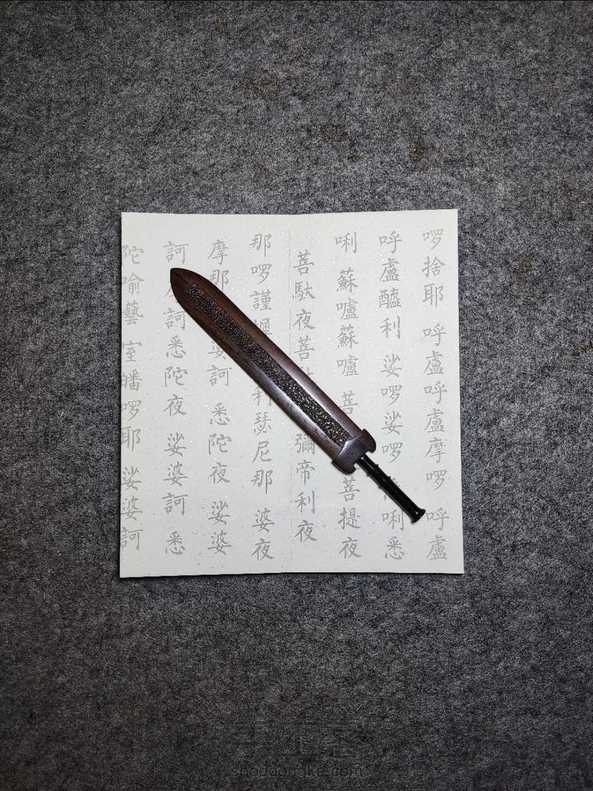 啰捨耶 呼盧呼盧摩啰 呼盧
呼盧醯利 娑啰娑啰 唎悉
唎 蘇嚧蘇嚧 菩 菩提夜
菩馱夜菩 彌帝利夜
那啰謹 利瑟尼那 婆夜
摩那 訶 悉陀夜 娑婆
訶 訶悉陀夜 娑婆訶 悉
陀喻藝 室皤啰耶 娑婆訶